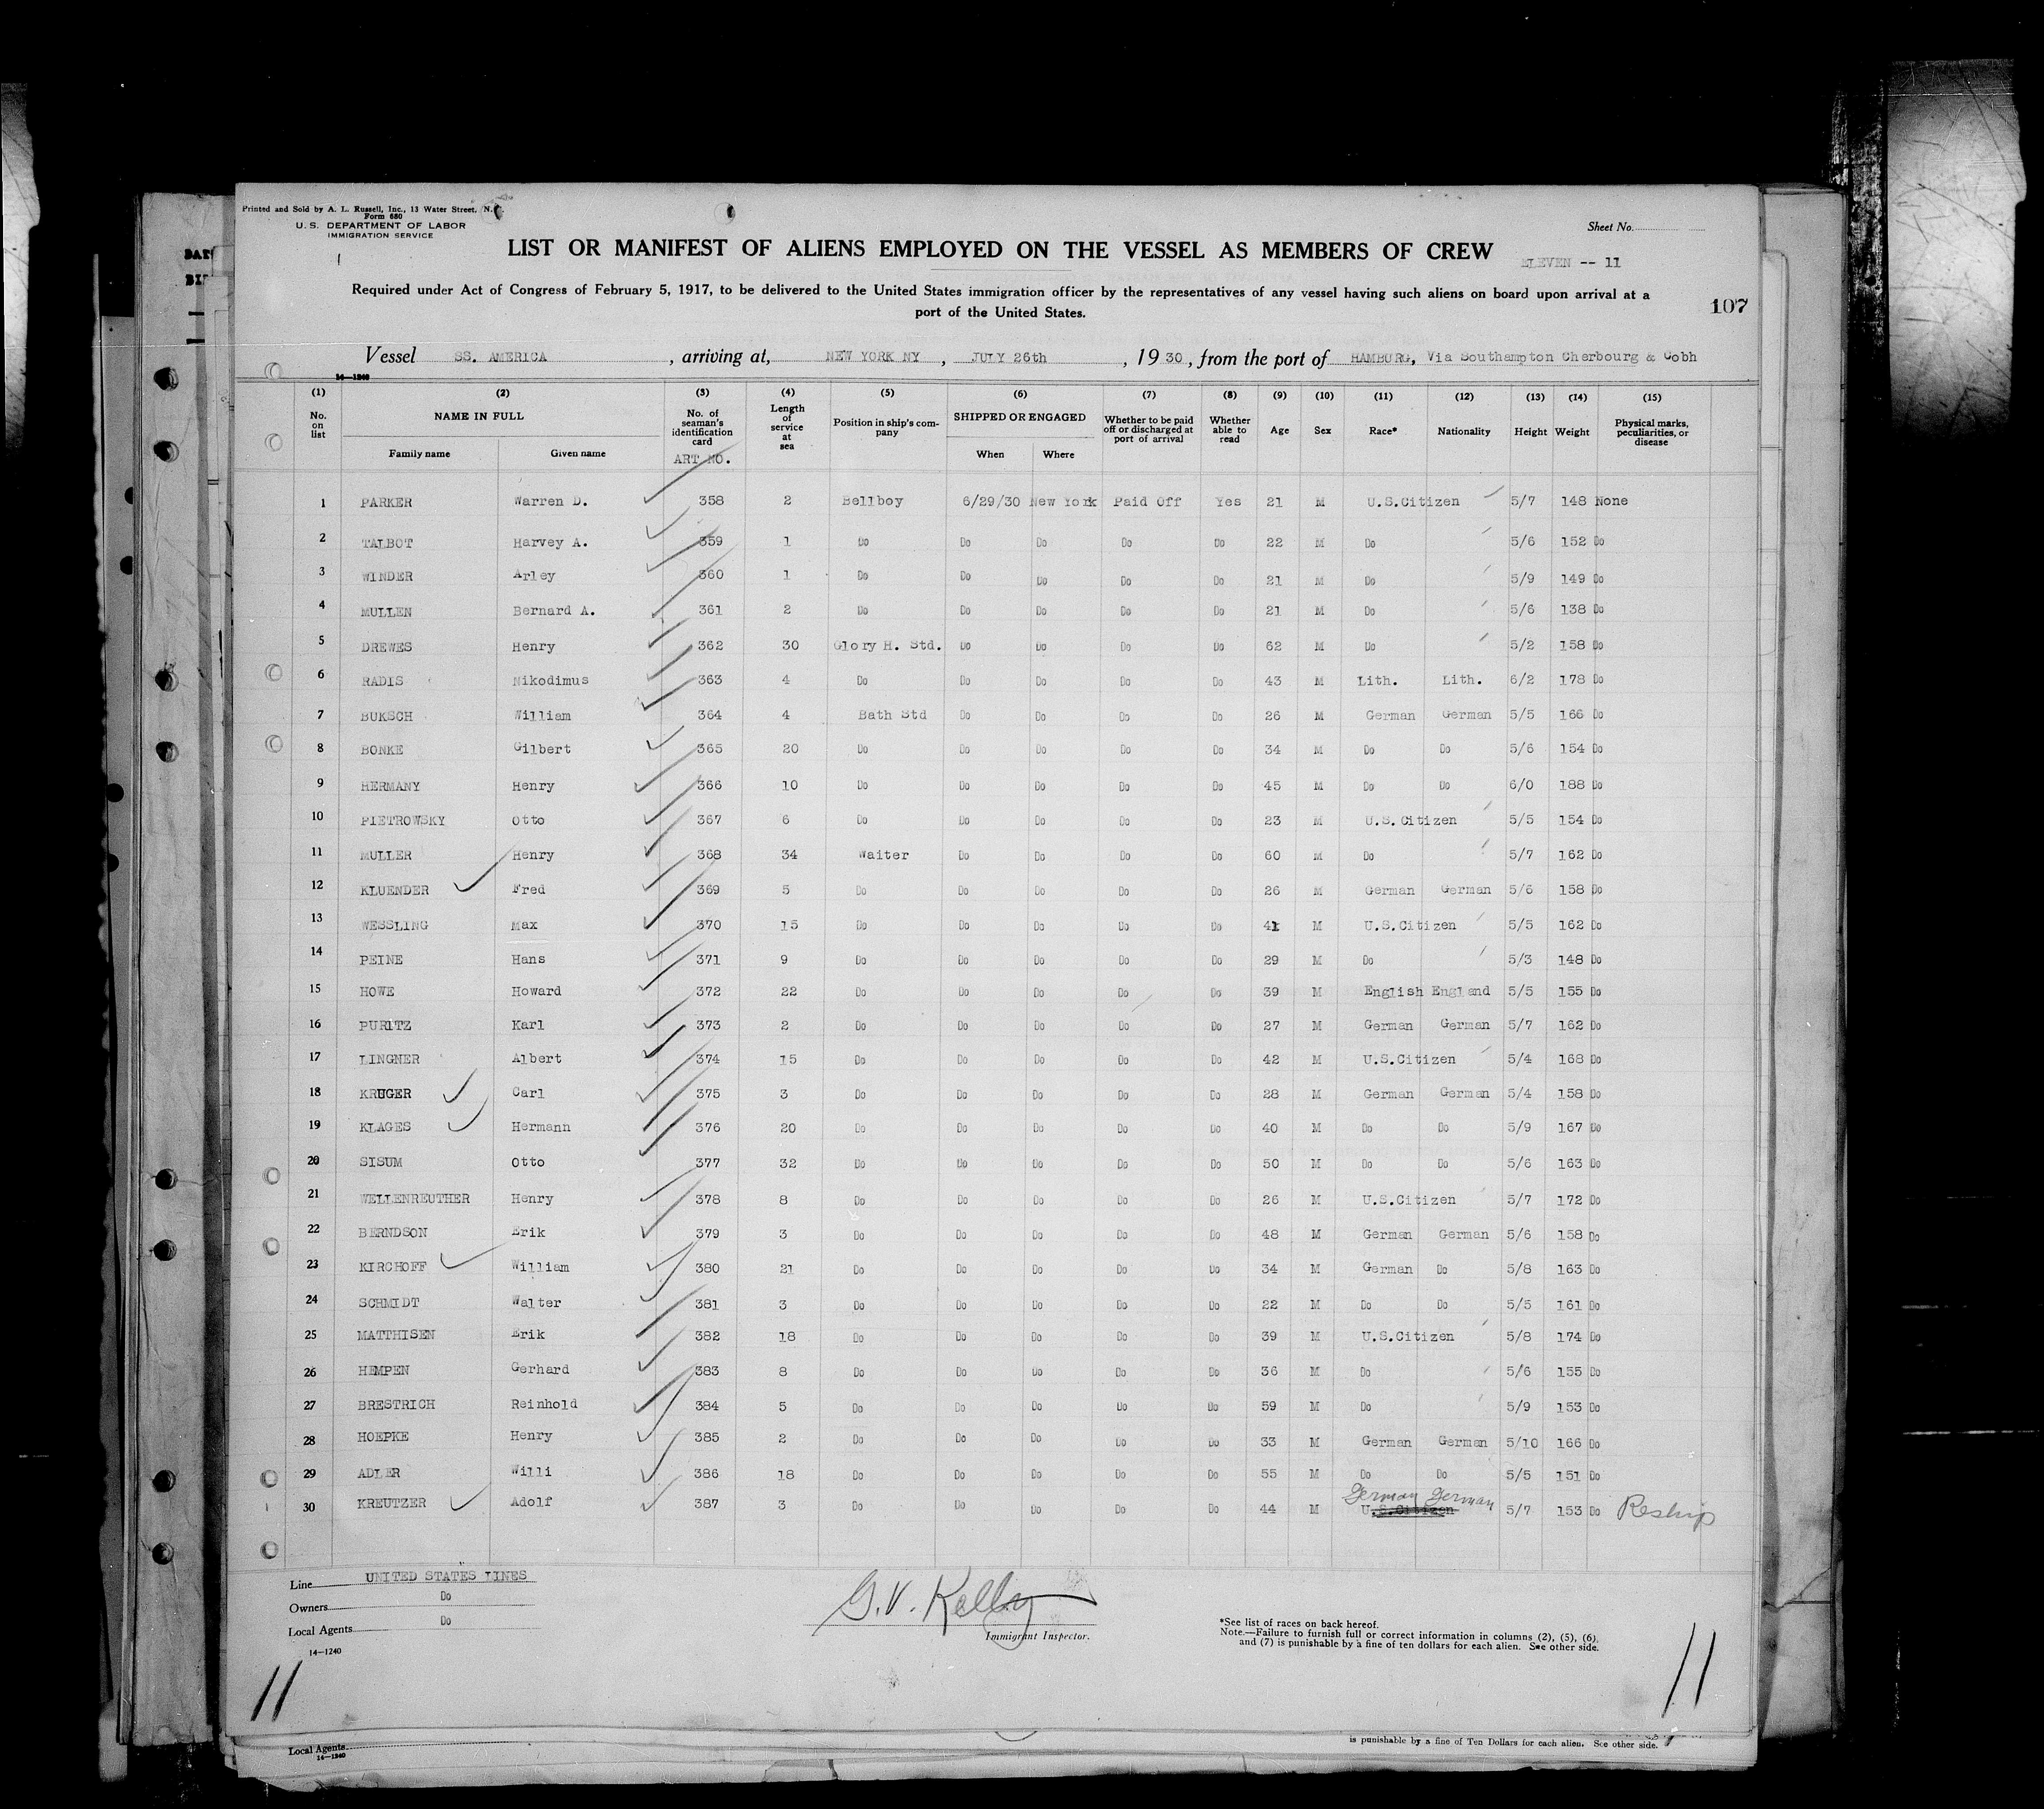 Printed and Sold by A. L. Russell, Inc., 13 Water Street, N.
Form 680
U. S. DEPARTMENT OF LABOR
IMMIGRATION SERVICE
Sheet No.
LIST OR MANIFEST OF ALIENS EMPLOYED ON THE VESSEL AS MEMBERS OF CREW
ELEVEN -- 11
Required under Act of Congress of February 5, 1917, to be delivered to the United States immigration officer by the representatives of any vessel having such aliens on board upon arrival at a
port of the United States.
107
Vessel SS. AMERICA, arriving at, NEW YORK NY, JULY 26th, 1930, from the port of HAMBURG, Via Southampton Cherbourg & Cobh
14—1240
(1) (2) (3) (4) (5) (6) (7) (8) (9) (10) (11) (12) (13) (14) (15)
No. on list NAME IN FULL Family name Given name No. of seaman's identification card ART NO. Length of service at sea Position in ship's company SHIPPED OR ENGAGED When Where Whether to be paid off or discharged at port of arrival Whether able to read Age Sex Race* Nationality Height Weight Physical marks, peculiarities, or disease
1 PARKER Warren D. 358 2 Bellboy 6/29/30 New York Paid Off Yes 21 M U.S.Citizen 5/7 148 None
2 TALBOT Harvey A. 359 1 Do Do Do Do Do 22 M Do 5/6 152 Do
3 WINDER Arley 360 1 Do Do Do Do Do 21 M Do 5/9 149 Do
4 MULLEN Bernard A. 361 2 Do Do Do Do Do 21 M Do 5/6 138 Do
5 DREWES Henry 362 30 Glory H. Std. Do Do Do Do 62 M Do 5/2 158 Do
6 RADIS Nikodimus 363 4 Do Do Do Do Do 43 M Lith. Lith. 6/2 178 Do
7 BUKSCH William 364 4 Bath Std Do Do Do Do 26 M German German 5/5 166 Do
8 BONKE Gilbert 365 20 Do Do Do Do Do 34 M Do Do 5/6 154 Do
9 HERMANY Henry 366 10 Do Do Do Do Do 45 M Do Do 6/0 188 Do
10 PIETROWSKY Otto 367 6 Do Do Do Do Do 23 M U.S.Citizen 5/5 154 Do
11 MULLER Henry 368 34 Waiter Do Do Do Do 60 M Do 5/7 162 Do
12 KLUENDER Fred 369 5 Do Do Do Do Do 26 M German German 5/6 158 Do
13 WESSLING Max 370 15 Do Do Do Do Do 41 M U.S.Citizen 5/5 162 Do
14 PEINE Hans 371 9 Do Do Do Do Do 29 M Do 5/3 148 Do
15 HOWE Howard 372 22 Do Do Do Do Do 39 M English England 5/5 155 Do
16 PURITZ Karl 373 2 Do Do Do Do Do 27 M German German 5/7 162 Do
17 LINGNER Albert 374 15 Do Do Do Do Do 42 M U.S.Citizen 5/4 168 Do
18 KRUGER Carl 375 3 Do Do Do Do Do 28 M German German 5/4 158 Do
19 KLAGES Hermann 376 20 Do Do Do Do Do 40 M Do Do 5/9 167 Do
20 SISUM Otto 377 32 Do Do Do Do Do 50 M Do Do 5/6 163 Do
21 WELLENREUTHER Henry 378 8 Do Do Do Do Do 26 M U.S.Citizen 5/7 172 Do
22 BERNDSON Erik 379 3 Do Do Do Do Do 48 M German German 5/6 158 Do
23 KIRCHOFF William 380 21 Do Do Do Do Do 34 M German Do 5/8 163 Do
24 SCHMIDT Walter 381 3 Do Do Do Do Do 22 M Do Do 5/5 161 Do
25 MATTHISEN Erik 382 18 Do Do Do Do Do 39 M U.S.Citizen 5/8 174 Do
26 HEMPEN Gerhard 383 8 Do Do Do Do Do 36 M Do 5/6 155 Do
27 BRESTRICH Reinhold 384 5 Do Do Do Do Do 59 M Do 5/9 153 Do
28 HOEPKE Henry 385 2 Do Do Do Do Do 33 M German German 5/10 166 Do
29 ADLER Willi 386 18 Do Do Do Do Do 55 M Do Do 5/5 151 Do
30 KREUTZER Adolf 387 3 Do Do Do Do Do 44 M German German U.S.Citizen 5/7 153 Do Reship
Line UNITED STATES LINES
Owners Do
Local Agents Do
14—1240
G.V. Kelly
Immigrant Inspector.
*See list of races on back hereof.
Note.—Failure to furnish full or correct information in columns (2), (5), (6),
and (7) is punishable by a fine of ten dollars for each alien. See other side.
11
11
Local Agents
14—1240
is punishable by a fine of Ten Dollars for each alien. See other side.